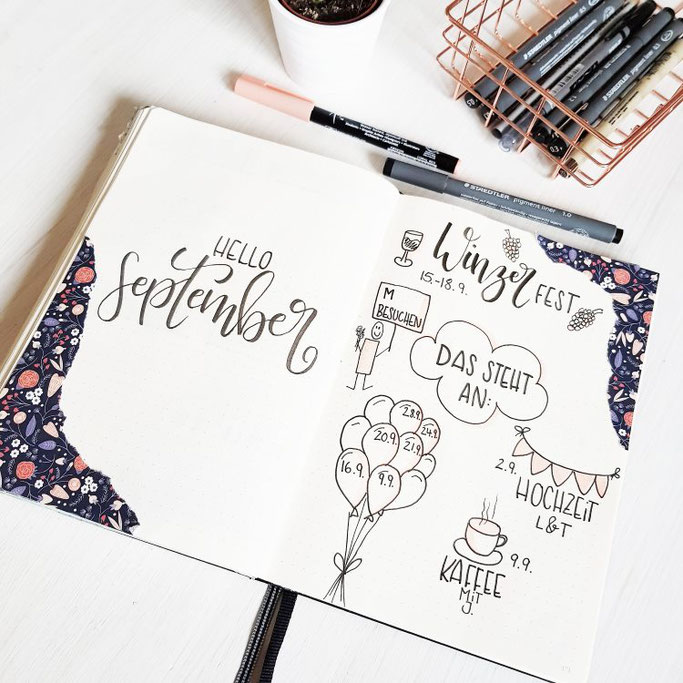 HELLO
September
Winzer FEST
15.-18.9.
M
BESUCHEN
DAS STEHT
AN:
28.9.
24.9.
20.9.
21.9.
16.9.
9.9.
2.9.
HOCHZEIT
L&T
9.9.
KAFFEE
MIT
J.
STAEDTLER pigment liner 1.0